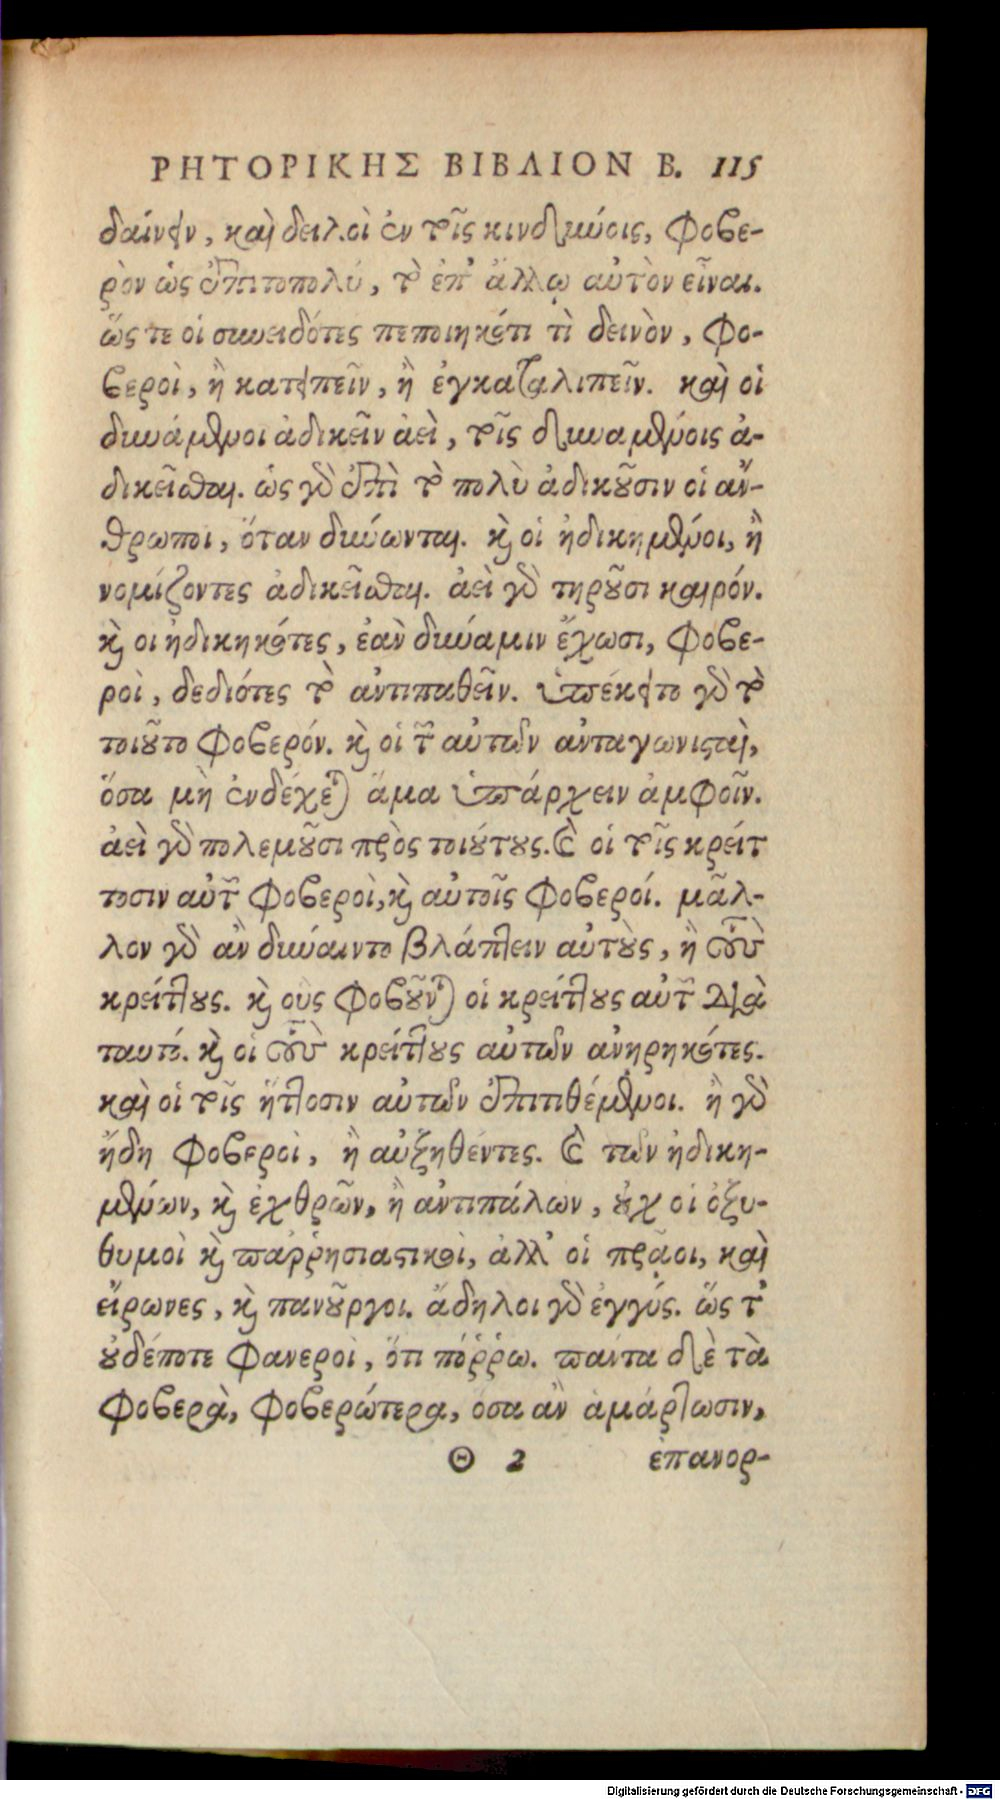 ΡΗΤΟΡΙΚΗΣ ΒΙΒΛΙΟΝ Β. 115
δαίνειν, καὶ δειλοὶ ἐν τοῖς κινδύνοις, φοβε-
ρὸν ὡς ἐπιτοπολύ, τὸ ἐπ' ἄλλῳ αὐτὸν εἶναι.
ὥς τε οἱ συνειδότες πεποιηκότι τὶ δεινὸν, φο-
βεροὶ, ἢ κατειπεῖν, ἢ ἐγκαταλιπεῖν. καὶ οἱ
δυνάμενοι ἀδικεῖν ἀεὶ, τοῖς δυναμένοις ἀ-
δικεῖσθαι. ὡς γὰρ ἐπὶ τὸ πολὺ ἀδικοῦσιν οἱ ἄν-
θρωποι, ὅταν δύνωνται. καὶ οἱ ἠδικημένοι, ἢ
νομίζοντες ἀδικεῖσθαι. ἀεὶ γὰρ τηροῦσι καιρόν.
καὶ οι ἠδικηκότες, ἐὰν δύναμιν ἔχωσι, φοβε-
ροὶ, δεδιότες τὸ ἀντιπαθεῖν. ὑπέκειτο γὰρ τὸ
τοιοῦτο φοβερόν. καὶ οἱ τῶν αὐτῶν ἀνταγωνισταὶ,
ὅσα μὴ ἐνδέχεται ἅμα ὑπάρχειν ἀμφοῖν.
ἀεὶ γὰρ πολεμοῦσι πρὸς τοιούτους. καὶ οἱ τοῖς κρείτ
τοσιν αὐτῶν φοβεροὶ, καὶ αὐτοῖς φοβεροί. μᾶλ-
λον γὰρ ἂν δύναιντο βλάπτειν αὐτοὺς, ἢ τοὺς
κρείττους. καὶ οὓς φοβοῦνται οἱ κρείττους αὐτῶν διὰ
ταυτό. καὶ οἱ τοὺς κρείττους αὐτῶν ἀνῃρηκότες.
καὶ οἱ τοῖς ἥττοσιν αὐτῶν ἐπιτιθέμενοι. ἢ γὰρ
ἤδη φοβεροὶ, ἢ αὐξηθέντες. καὶ τῶν ἠδικη-
μένων, καὶ ἐχθρῶν, ἢ ἀντιπάλων, οὐχ οἱ ὀξυ-
θυμοὶ καὶ παῤῥησιαστικοὶ, ἀλλ' οἱ πρᾶοι, καὶ
εἴρωνες, καὶ πανοῦργοι. ἄδηλοι γὰρ ἐγγύς. ὥς τ'
οὐδέποτε φανεροὶ, ὅτι πόῤῥω. πάντα δὲ τὰ
φοβερὰ, φοβερώτερα, ὅσα ἂν ἁμάρτωσιν,
Θ 2 ἐπανορ-
Digitalisierung gefördert durch die Deutsche Forschungsgemeinschaft - DFG